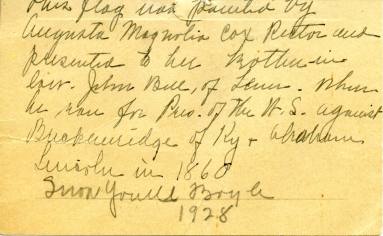 This flag was painted by
Augusta Magnolia Cox Rector and
presented to her brother-in
law. John Bell, of Tenn. When
he ran for Pres. of the U.S. against
Breckenridge of Ky + Abraham
Lincoln in 1860
Boyle
1928